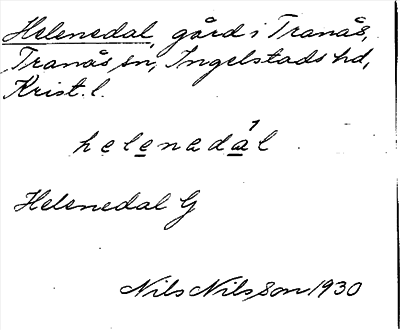 Helenedal, gård i Tranås,
Tranås sn, Ingelstads hd,
Krist. l.
helenedál
Helenedal G
Nils Nilsson 1930